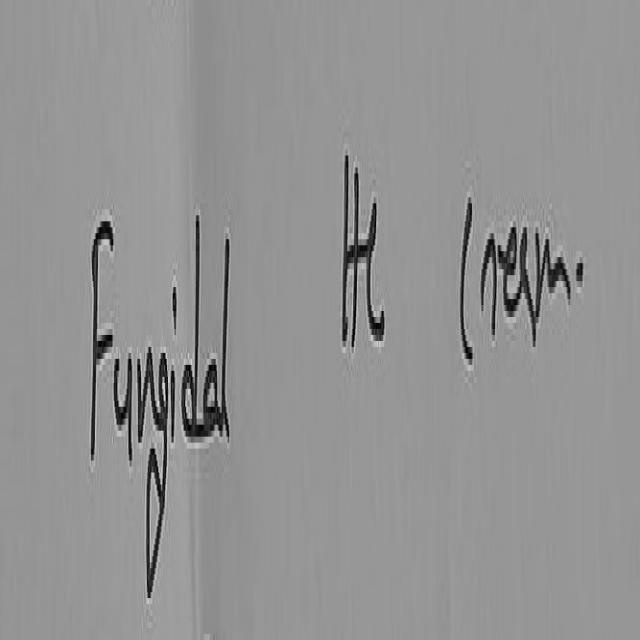 Fungidal HC Cream.